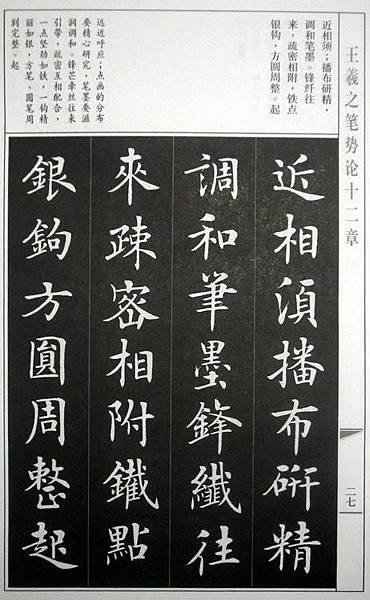 王羲之笔势论十二章
二七
近相须；播布研精，
调和笔墨。锋纤往
来，疏密相附，铁点
银钩，方圆周整。起
远近呼应；点画的分布
要精心研究，笔墨要滋
润调和。锋芒牵丝往来
引带，疏密互相配合，
一点坚劲如铁，一钩精
丽如银，方笔、圆笔周
到完整。起
近相湏播布硏精
調和筆墨鋒纖往
來疎密相附鐵點
銀鉤方圓周整起